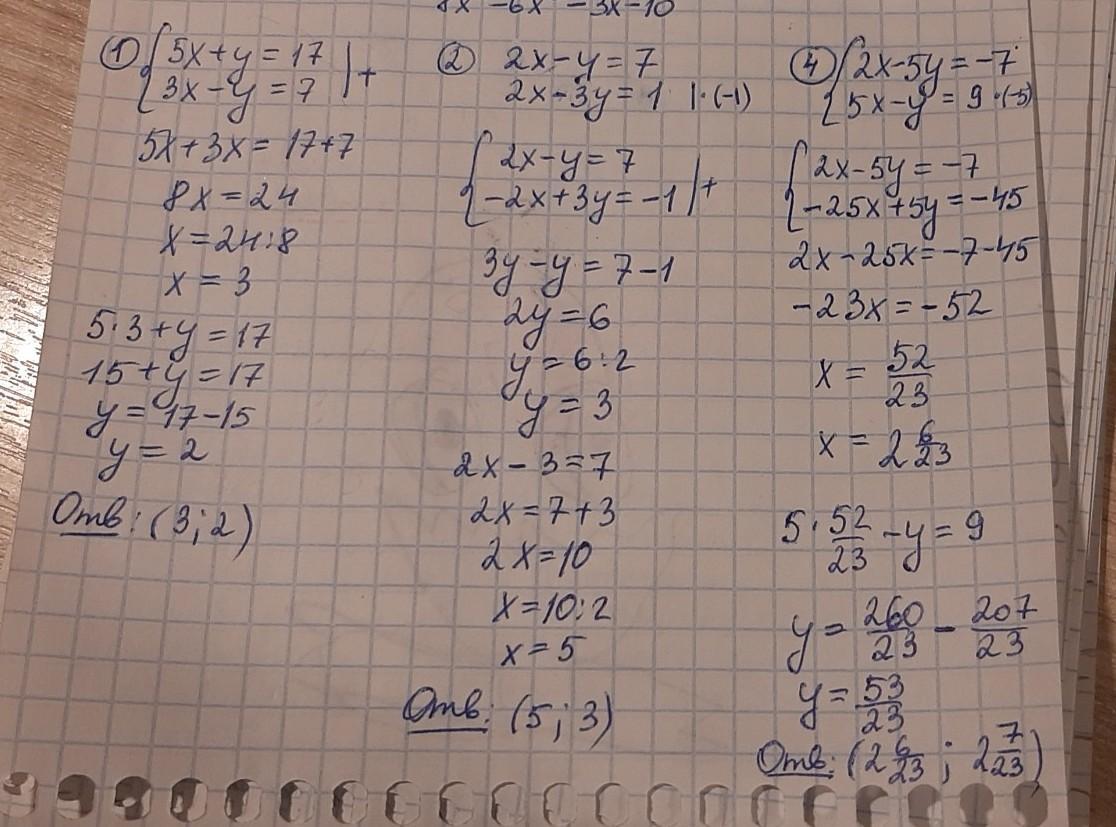 8x - 6x - 3x - 10
① { 5x + y = 17 | +
3x - y = 7
5x + 3x = 17 + 7
8x = 24
x = 24 : 8
x = 3
5 · 3 + y = 17
15 + y = 17
y = 17 - 15
y = 2
Отв: (3; 2)
② 2x - y = 7
2x - 3y = 1 | · (-1)
{ 2x - y = 7 | +
-2x + 3y = -1
3y - y = 7 - 1
2y = 6
y = 6 : 2
y = 3
2x - 3 = 7
2x = 7 + 3
2x = 10
x = 10 : 2
x = 5
Отв: (5; 3)
④ { 2x - 5y = -7
5x - y = 9 · (-5)
{ 2x - 5y = -7
-25x + 5y = -45
2x - 25x = -7 - 45
-23x = -52
x = 52/23
x = 2 6/23
5 · 52/23 - y = 9
y = 260/23 - 207/23
y = 53/23
Отв: (2 6/23; 2 7/23)